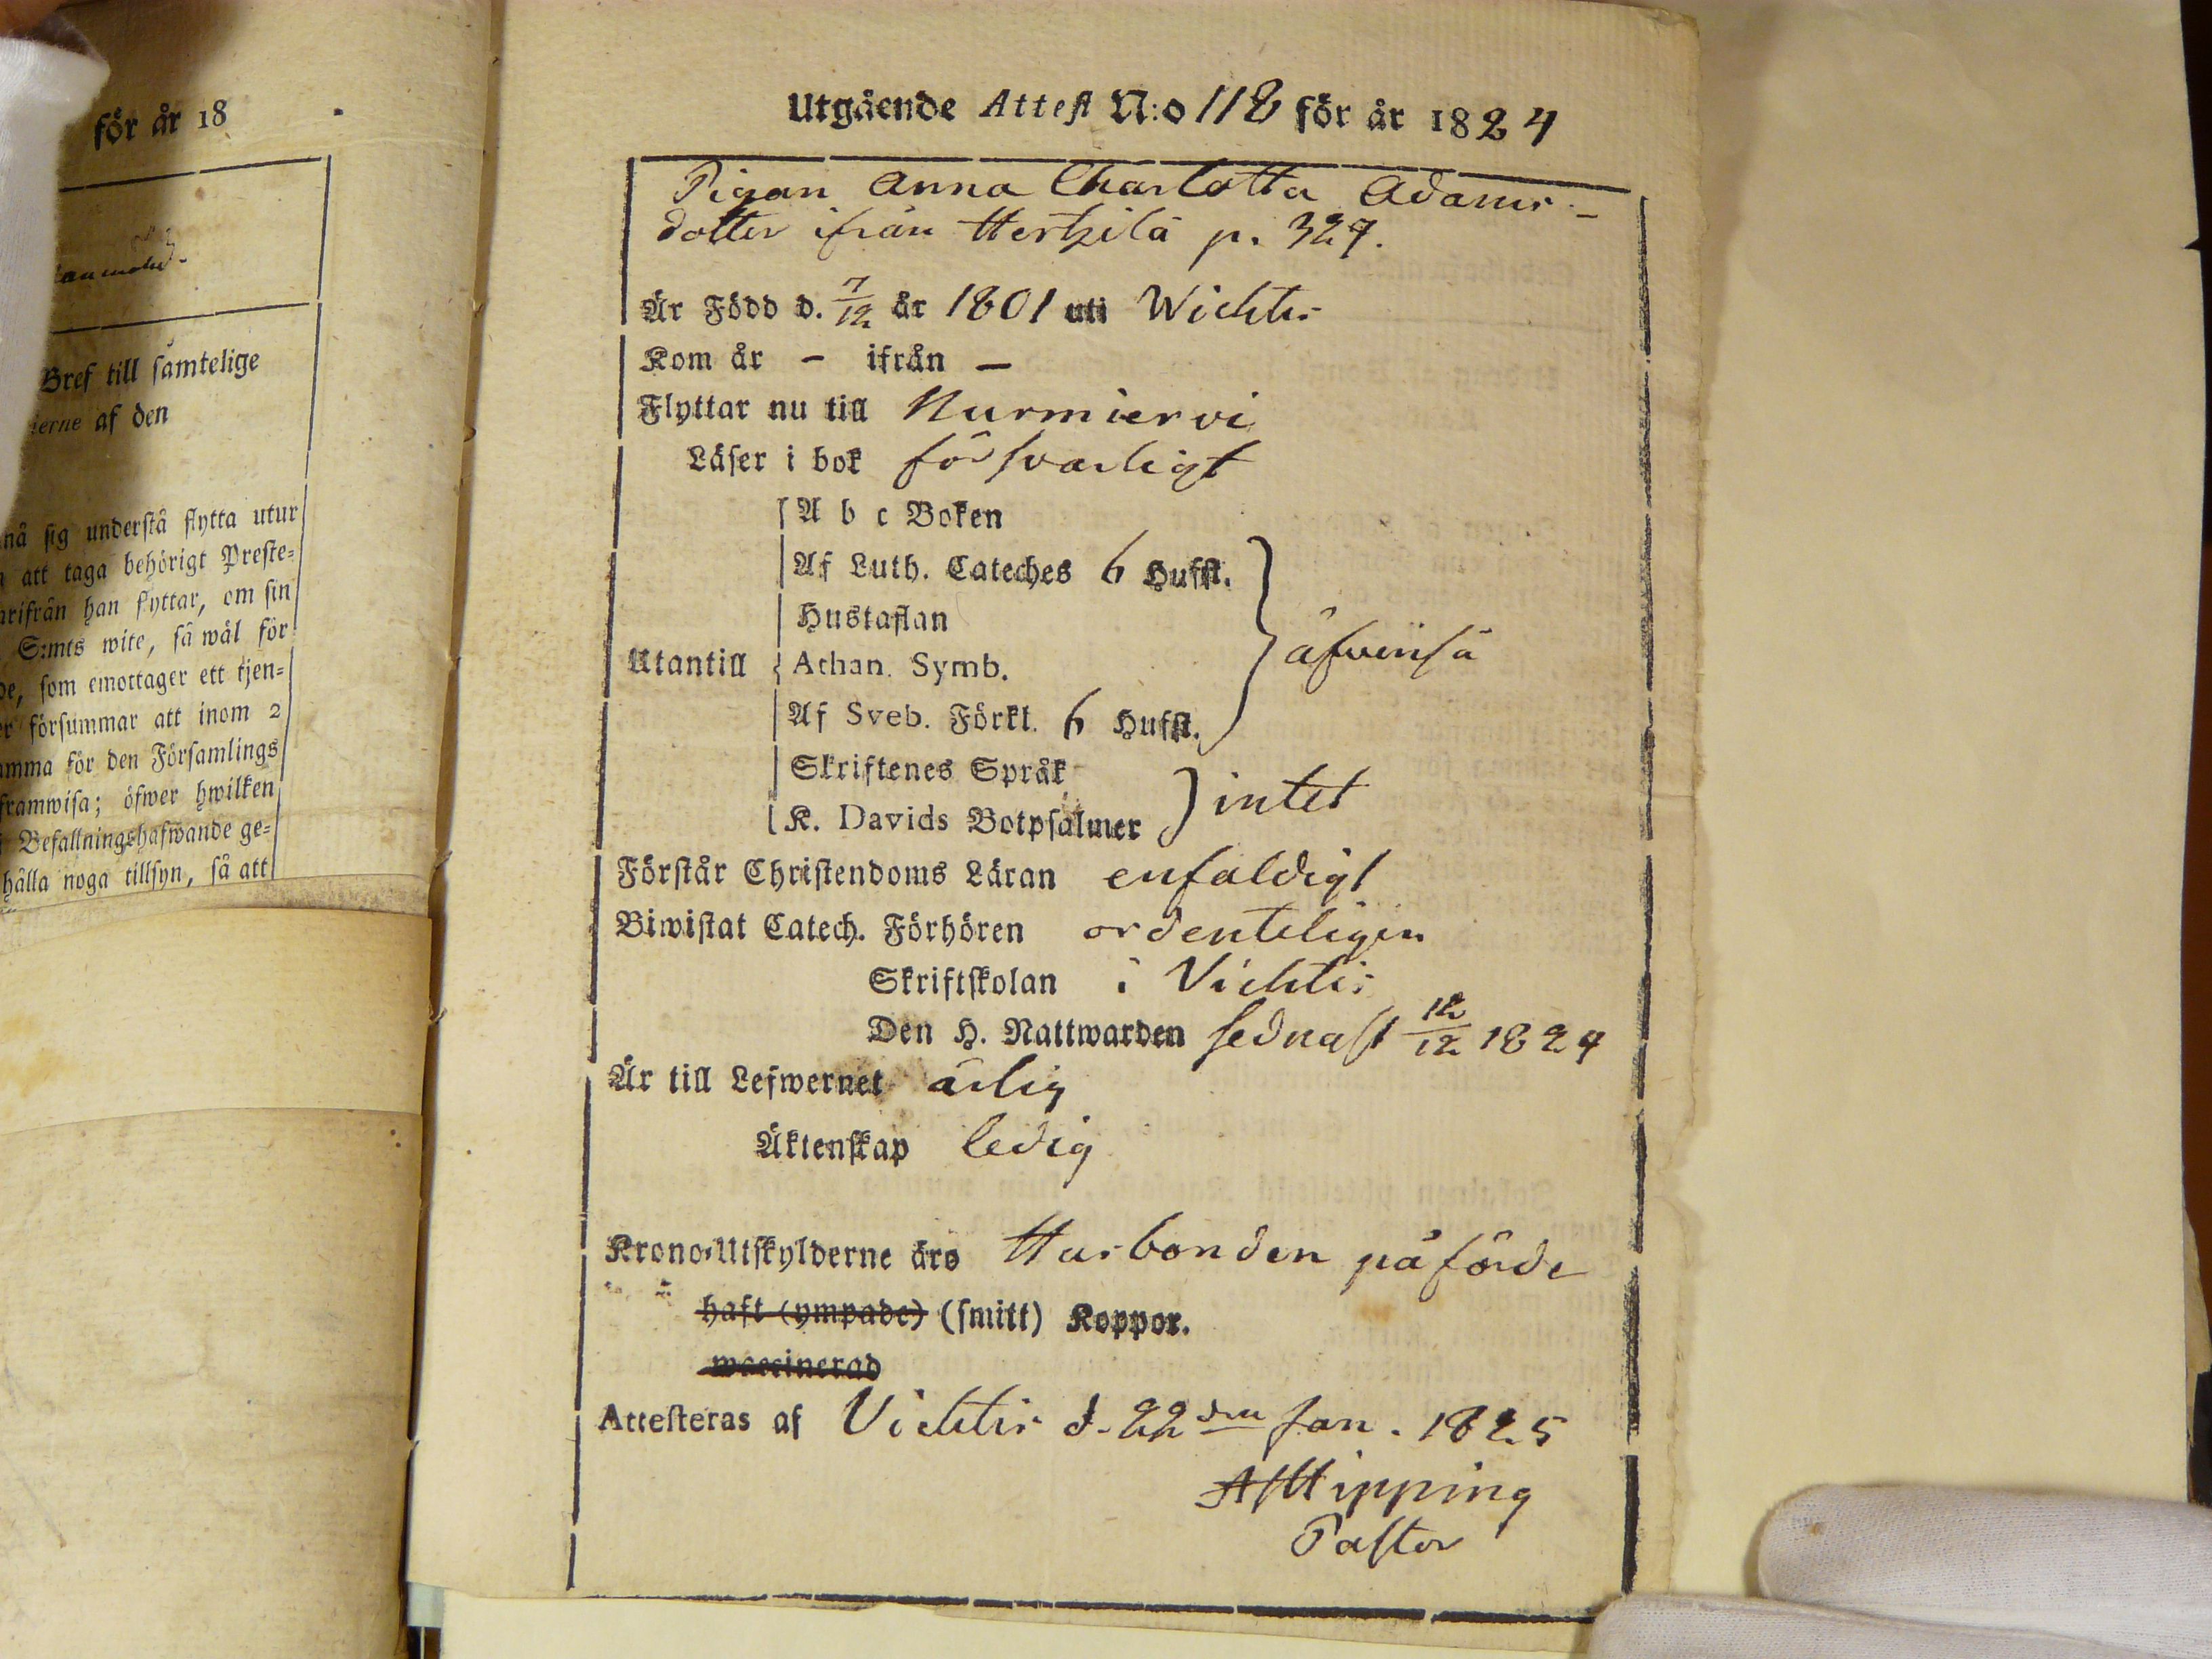 för år 18
Bref till samtelige
ierne af den
nå sig understå flytta utur
att taga behörigt Preste=
arifrån han flyttar, om sin
S:mts wite, så wäl för
de, som emottager ett tjen=
er försummar att inom 2
amma för den Församlings
framwisa; öfwer hwilken
Befallningshafwande ge=
hålla noga tillsyn, så att
Utgående Attest N:o 118 för år 1824
Pigan Anna Charlotta Adams-
dotter ifrån Hertzilä p. 327.
Är Född d. 7/12 år 1801 uti Wichtis
Kom år – ifrån –
Flyttar nu till Nurmiervi
Läser i bok försvarligt
A b c Boken
Af Luth. Cateches 6 Hufst.
Hustaflan
Utantill Athan. Symb. äfwenså
Af Sveb. Förkl. 6 Hufst.
Skriftenes Språk
K. Davids Botpsalmer intet
Förstår Christendoms Läran enfaldigt
Biwistat Catech. Förhören ordenteligen
Skriftskolan i Vichtis
Den H. Nattwarden sednast 12/12 1824
Är till Lefwernet ärlig
Äktenskap ledig
Krono-Utskylderne äro Husbonden påförde
haft (ympade) (smitt) Koppor.
waccinerad
Attesteras af Vichtis d. 22den Jan. 1825
AJHipping
Pastor